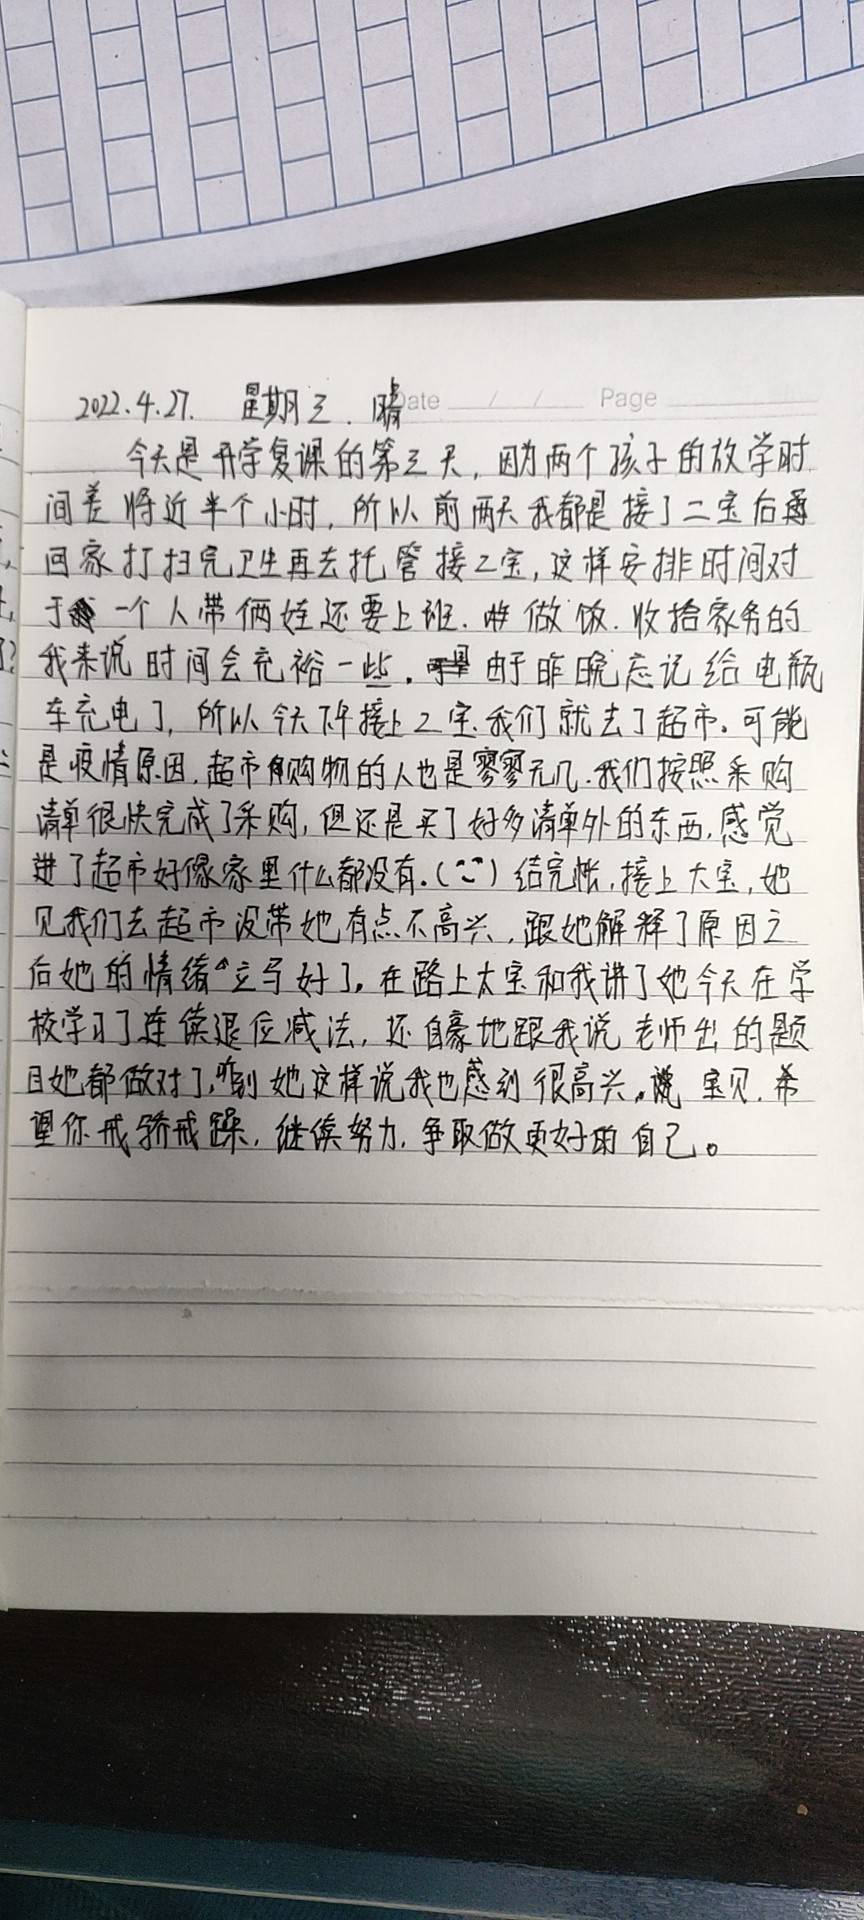 2022.4.27. 星期三.晴
Date / / Page
今天是开学复课的第三天，因为两个孩子的放学时
间差将近半个小时，所以前两天我都是接了二宝后再
回家打扫完卫生再去托管接2宝，这样安排时间对
于一个人带俩娃还要上班.做饭.收拾家务的
我来说时间会充裕一些。由于昨晚忘记给电瓶
车充电了，所以今天下午接上2宝.我们就去了超市。可能
是疫情原因,超市购物的人也是寥寥无几.我们按照采购
清单很快完成了采购，但还是买了好多清单外的东西,感觉
进了超市好像家里什么都没有.( ) 结完帐,接上大宝,她
见我们去超市没带她有点不高兴，跟她解释了原因之
后她的情绪立马好了。在路上大宝和我讲了她今天在学
校学习了连续退位减法，还自豪地跟我说老师出的题
目她都做对了,听到她这样说我也感到很高兴。宝贝.希
望你戒骄戒躁，继续努力.争取做更好的自己。